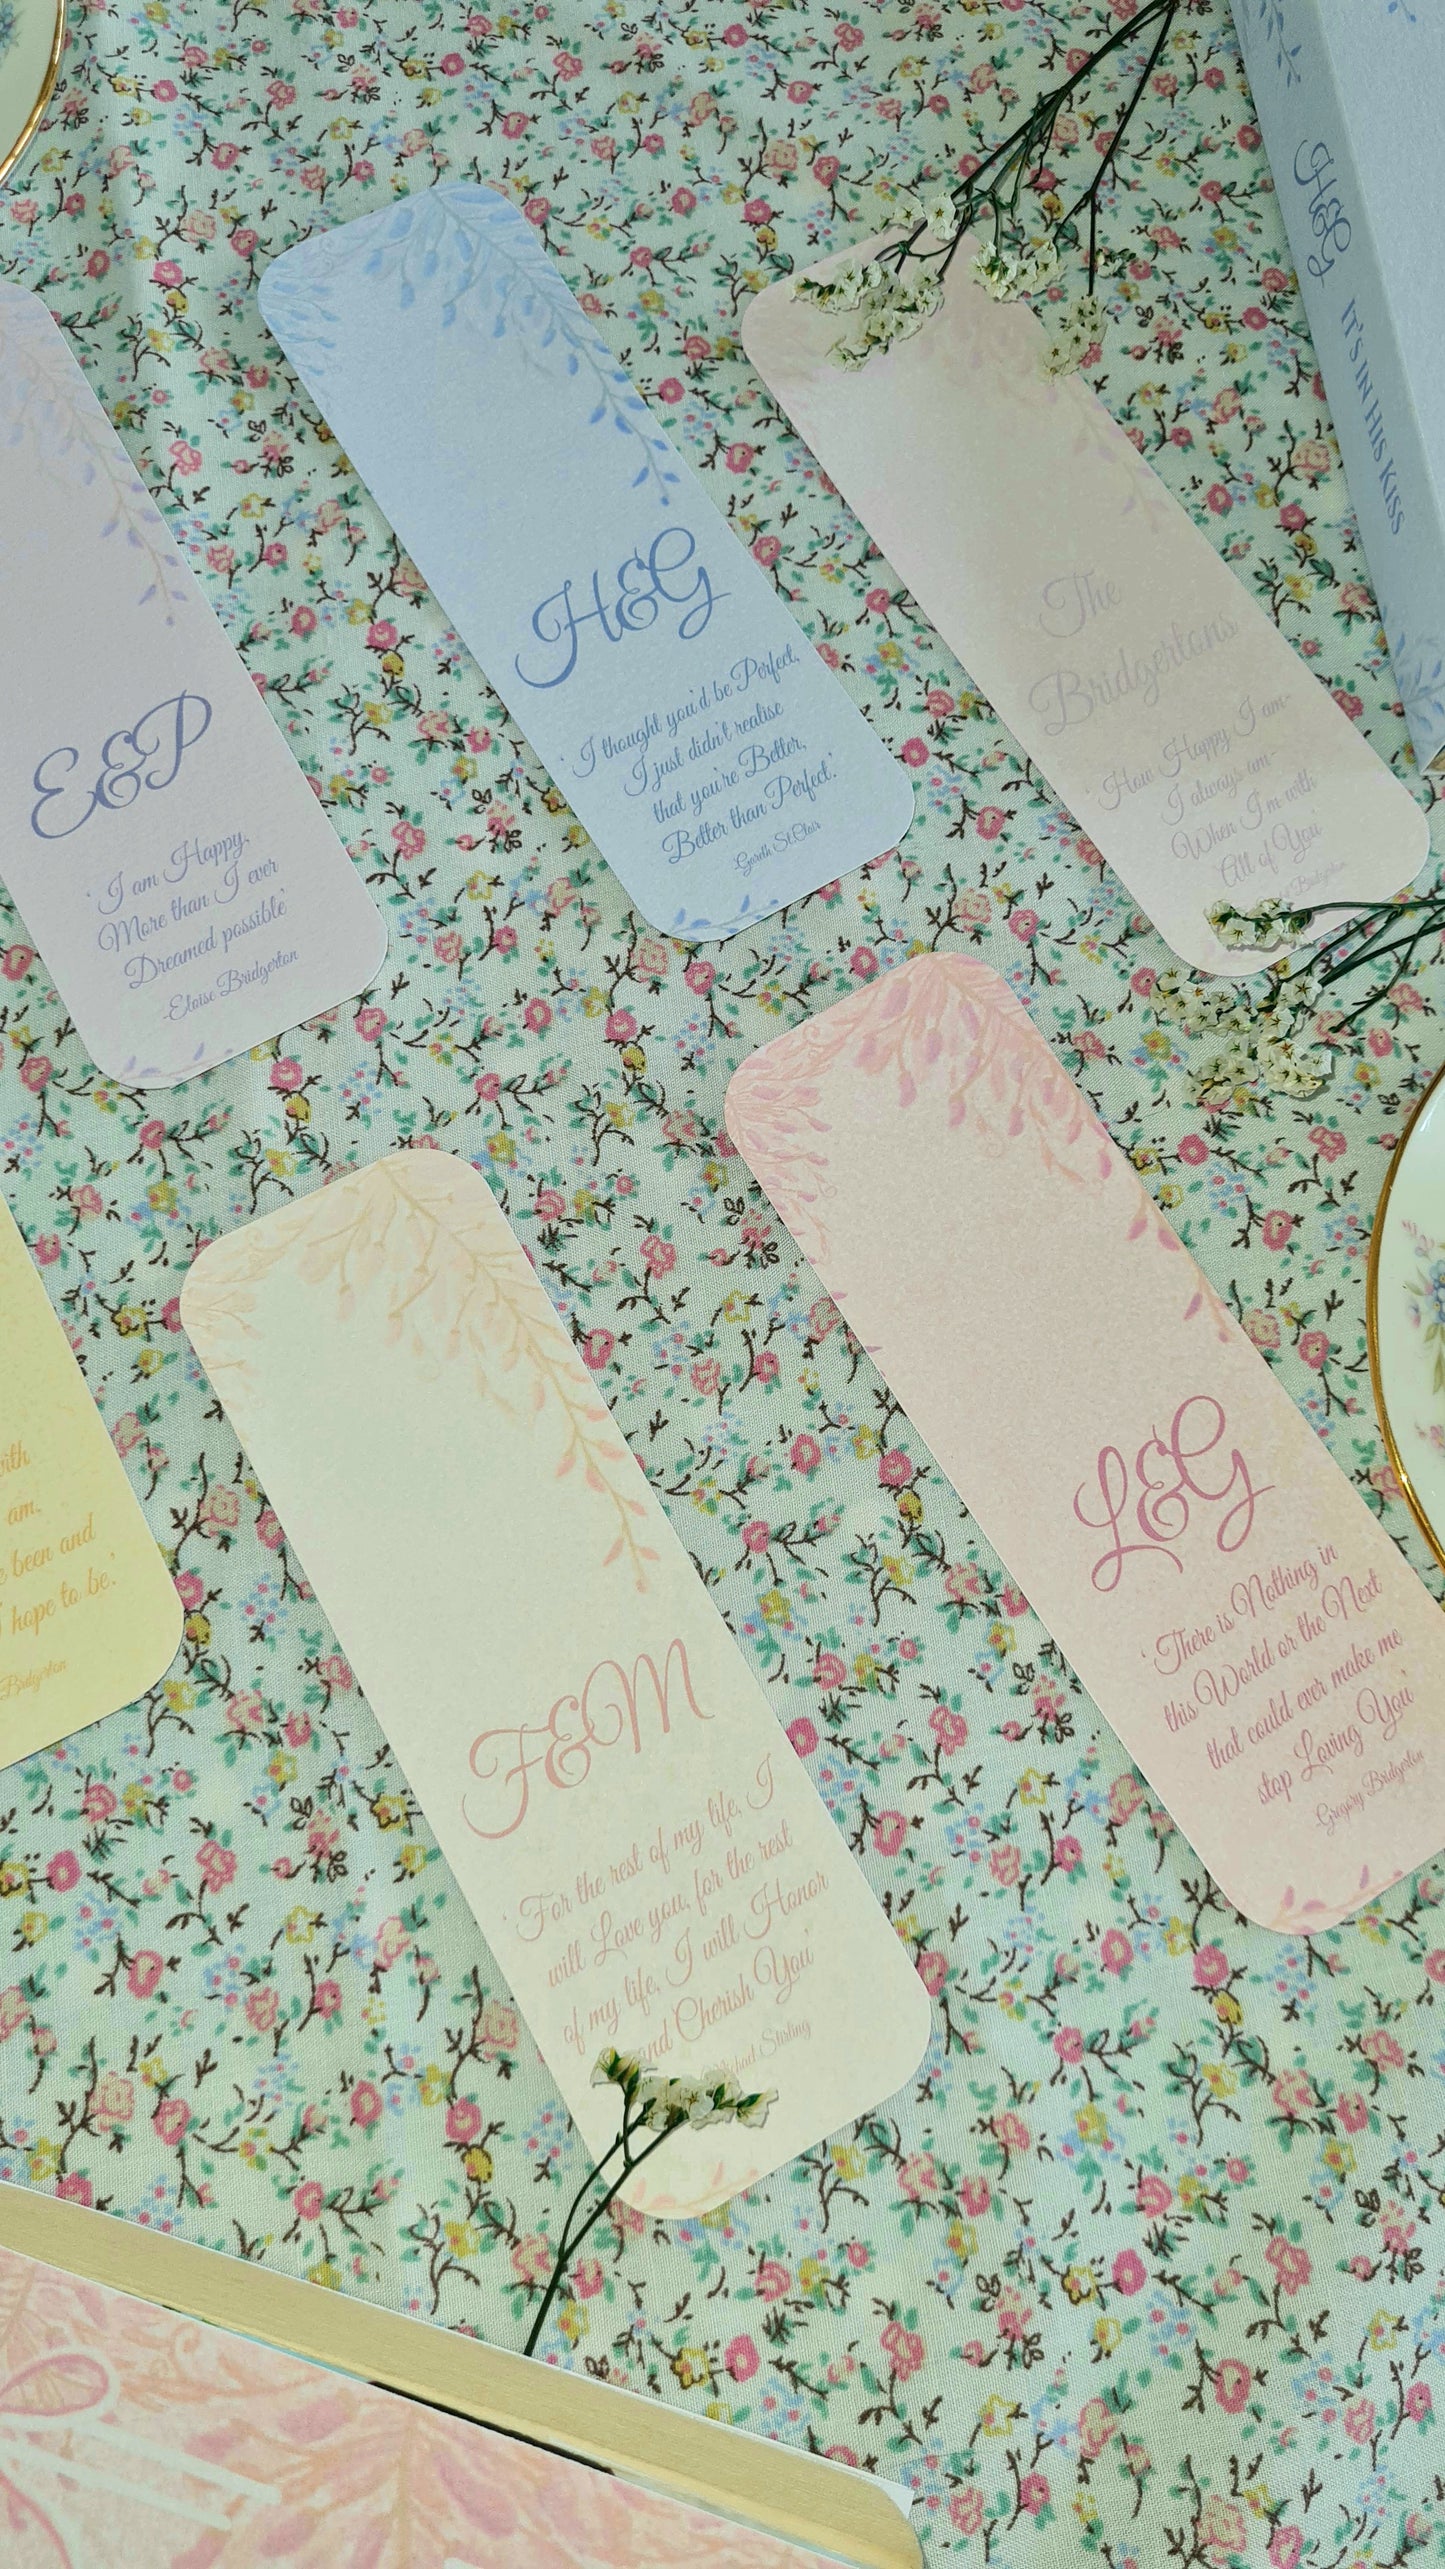 E&P
' I am Happy,
More than I ever
Dreamed possible'
-Eloise Bridgerton
H&G
' I thought you'd be Perfect,
I just didn't realise
that you're Better,
Better than Perfect.'
-Gareth St.Clair
The
Bridgertons
' How Happy I am-
I always am-
When I'm with
All of You'
Bridgerton
H&G IT'S IN HIS KISS
am.
been and
hope to be.'
Bridgerton
F&M
' For the rest of my life, I
will Love you, for the rest
of my life, I will Honor
and Cherish You'
Michael Stirling
L&G
' There is Nothing in
this World or the Next
that could ever make me
stop Loving You'
-Gregory Bridgerton